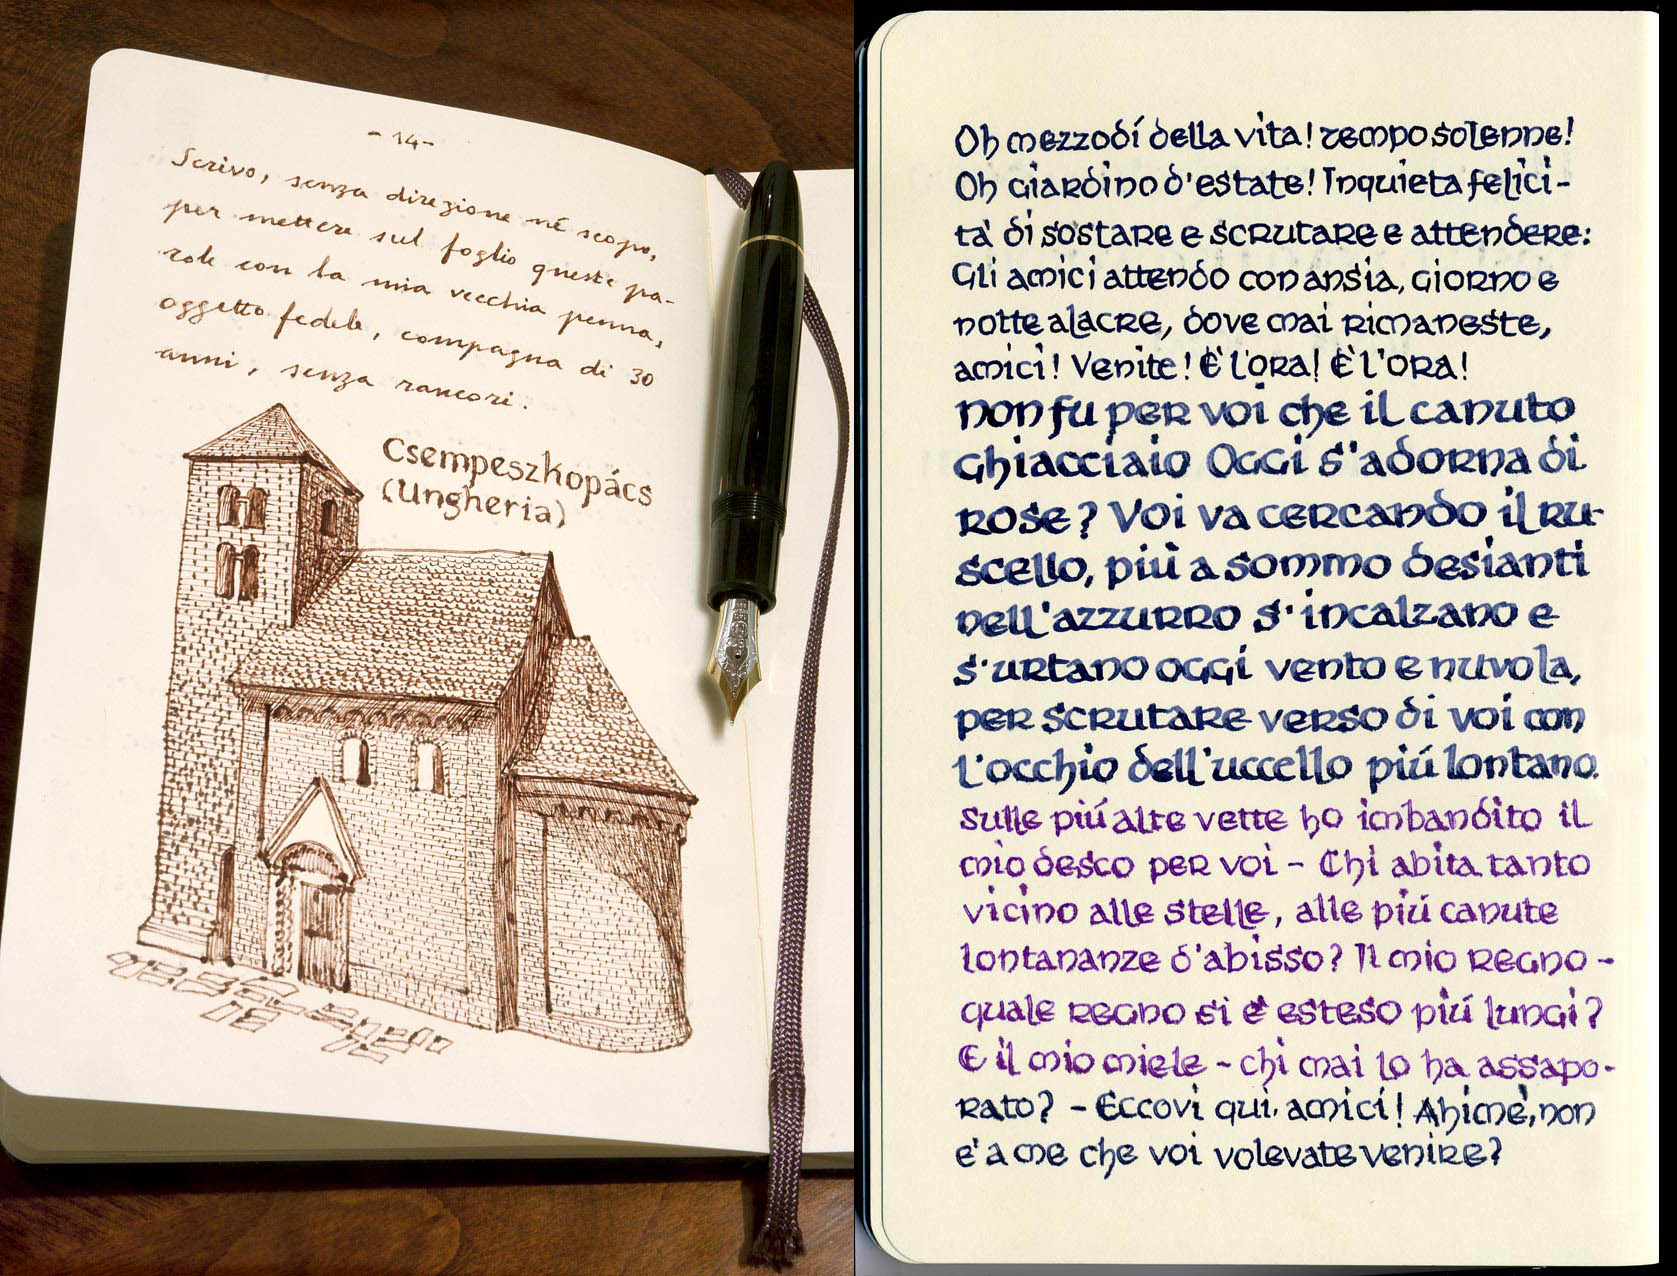 - 14 -
Scrivo, senza direzione né scopo,
per mettere sul foglio queste pa-
role con la mia vecchia penna,
oggetto fedele, compagna di 30
anni, senza rancori.
Csempeszkopács
(Ungheria)
Oh mezzodí della vita! tempo solenne!
Oh giardino d'estate! Inquieta felici-
ta' di sostare e scrutare e attendere:
Gli amici attendo con ansia, giorno e
notte alacre, dove mai rimaneste,
amici! Venite! È l'ora! È l'ora!
non fu per voi che il canuto
ghiacciaio oggi s'adorna di
rose? Voi va cercando il ru-
scello, più a sommo desianti
nell'azzurro s'incalzano e
s'urtano oggi vento e nuvola,
per scrutare verso di voi con
l'occhio dell'uccello piú lontano.
Sulle piú alte vette ho imbandito il
mio desco per voi - Chi abita tanto
vicino alle stelle, alle piú canute
lontananze d'abisso? Il mio regno -
quale regno si è esteso piú lungi?
E il mio miele - chi mai lo ha assapo-
rato? - Eccovi qui, amici! Ahimè, non
e' a me che voi volevate venire?